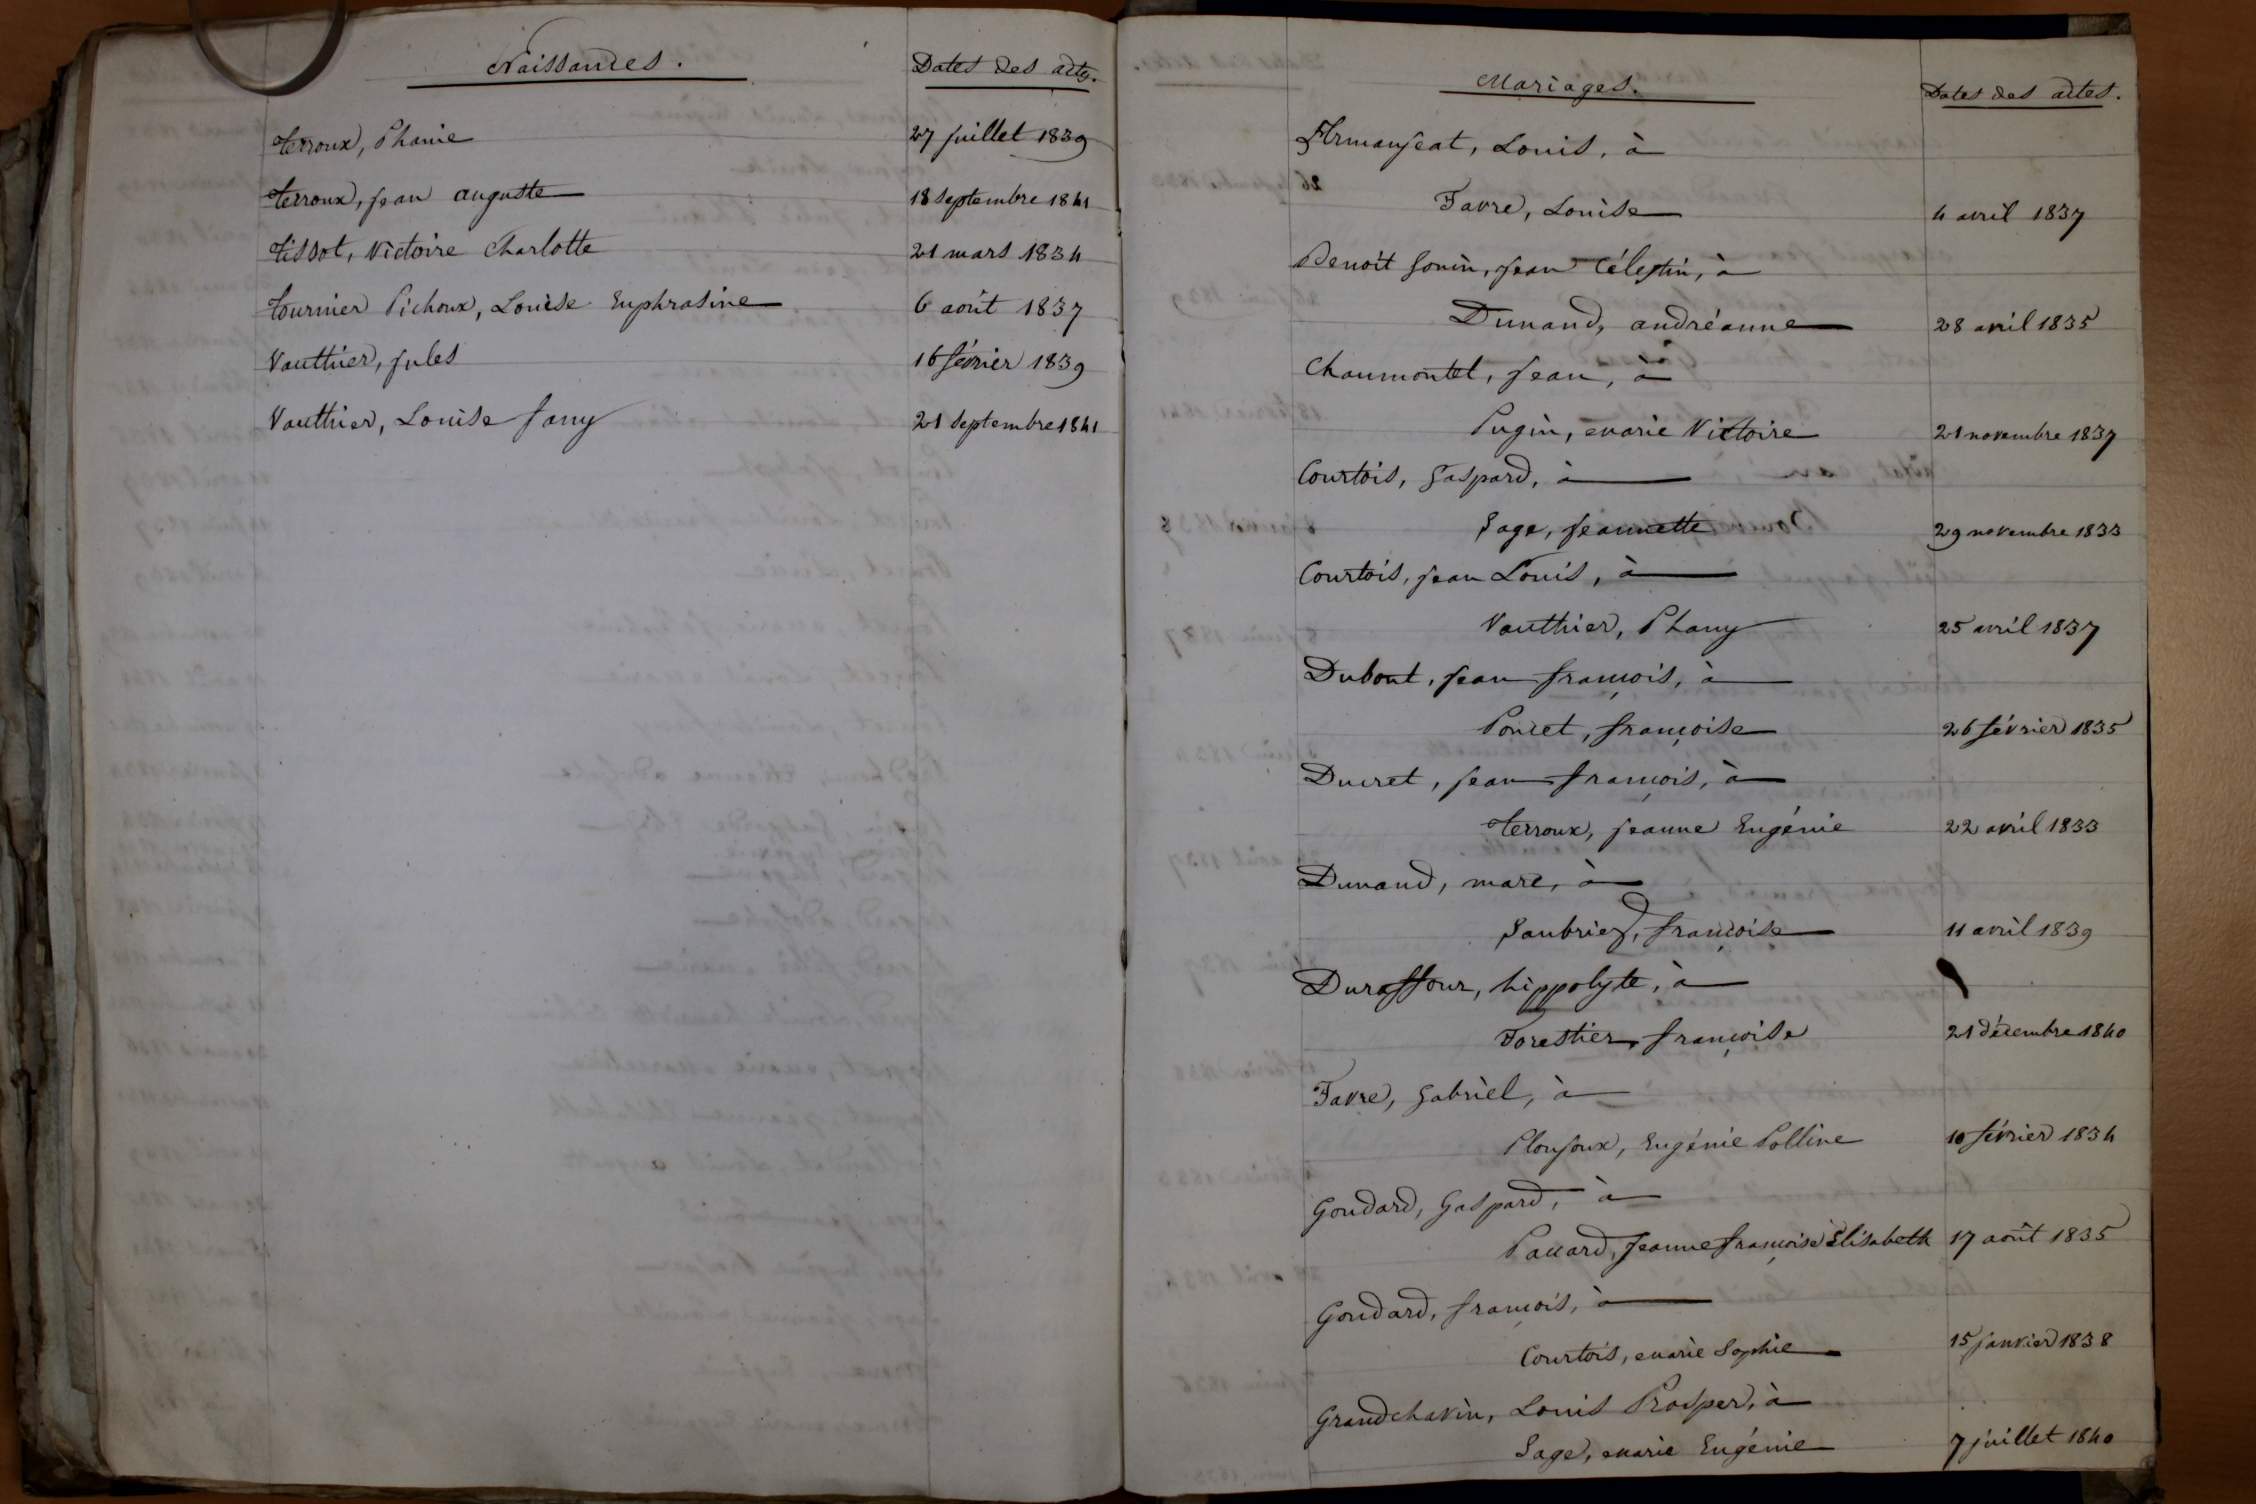 Naissances.
Dates des actes.
Terroux, Phanie
27 juillet 1839
Terroux, jean auguste
18 septembre 1841
Tissot, Victoire Charlotte
21 mars 1834
Tournier Pichoux, Louise Euphrasine
6 août 1837
Vauthier, jules
16 février 1839
Vauthier, Louise fany
21 septembre 1841
Mariages.
Dates des actes.
Armanjeat, Louis, à
Favre, Louise
4 avril 1837
Benoit Gonin, jean Célestin, à
Dunand, andréanne
28 avril 1835
Chaumontet, jean, à
Pugin, marie Victoire
21 novembre 1837
Courtois, gaspard, à
Sage, jeannette
29 novembre 1833
Courtois, jean Louis, à
Vauthier, Phany
25 avril 1837
Dubout, jean françois, à
Poncet, françoise
26 février 1835
Ducret, jean françois, à
Terroux, jeanne Eugénie
22 avril 1833
Dunand, marc, à
françoise
11 avril 1839
Duraffour, hippolyte, à
Forestier, françoise
21 décembre 1840
Favre, gabriel, à
Ploujoux, Eugénie Polline
10 février 1834
Goudard, Gaspard, à
Paccard, jeanne françoise Elisabeth
17 août 1835
Goudard, françois, à
Courtois, marie Sophie
15 janvier 1838
Grandchavin, Louis Prosper, à
Sage, marie Eugénie
7 juillet 1840